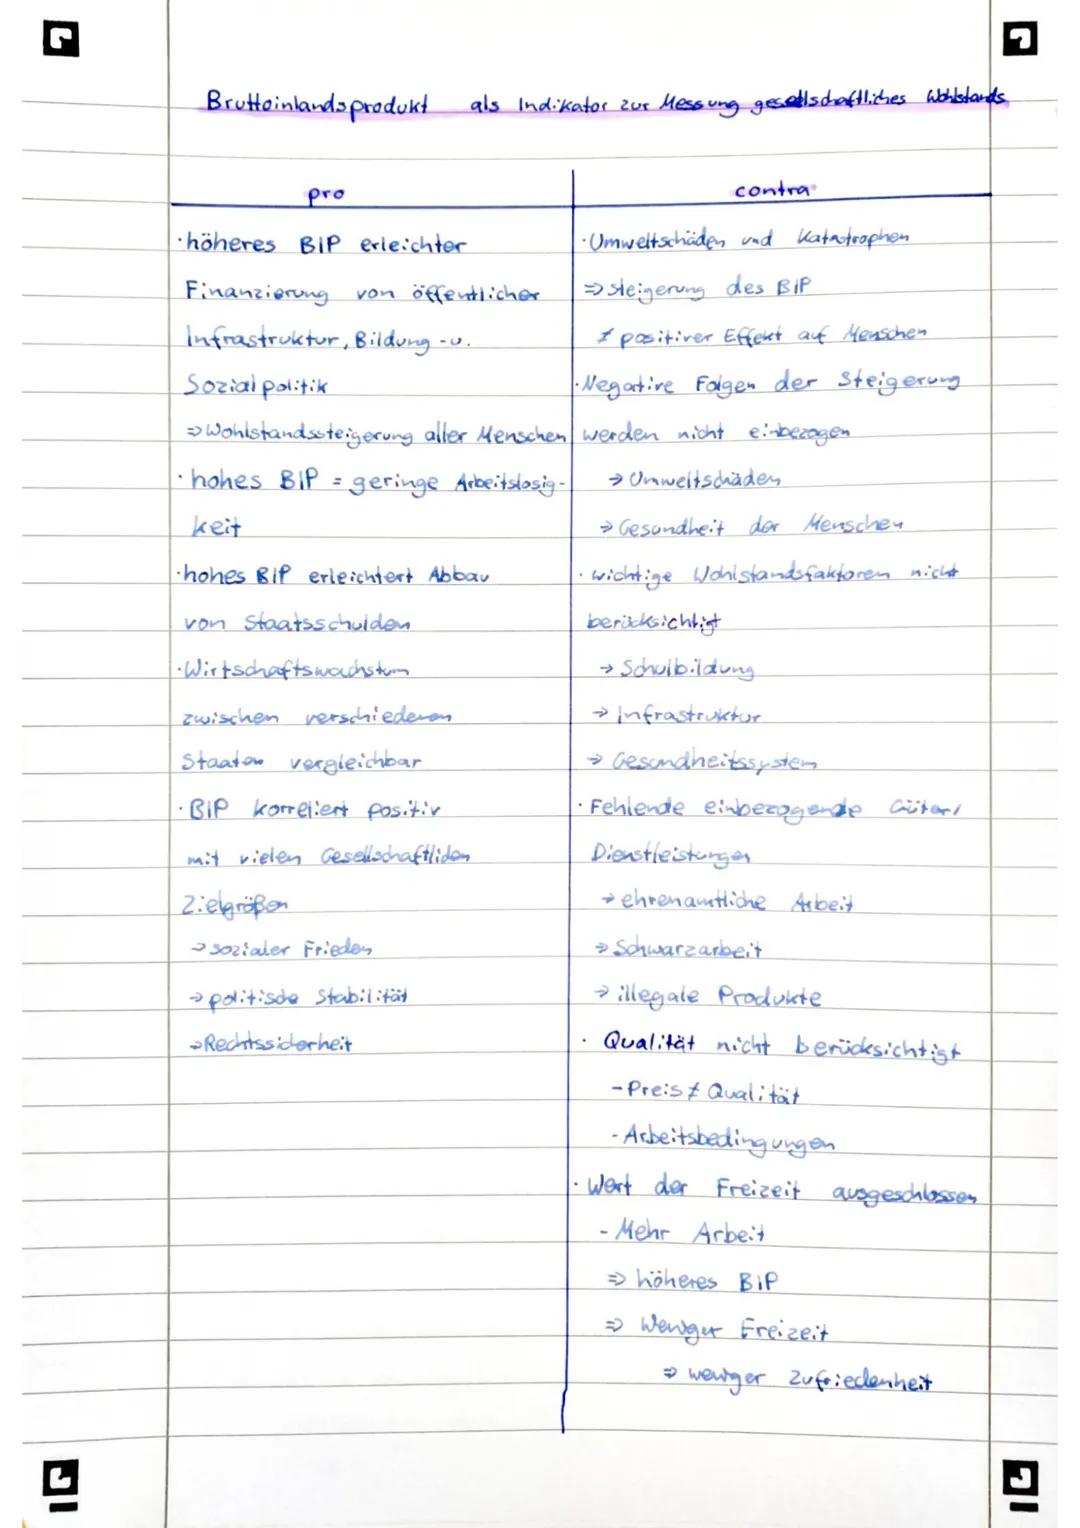 Bruttoinlandsprodukt als Indikator zur Messung gesellschaftliches Wohlstands
pro
·höheres BIP erleichter
Finanzierung von öffentlicher
Infrastruktur, Bildung -u.
Sozialpolitik
⇒Wohlstandssteigerung aller Menschen
·hohes BIP = geringe Arbeitslosig-
keit
·hohes BIP erleichtert Abbau
von Staatsschulden
·Wirtschaftswachstum
zwischen verschiedenen
Staaten vergleichbar
·BIP korreliert positiv
mit vielen Gesellschaftlichen
Zielgrößen
→sozialer Frieden
→politische Stabilität
→Rechtssicherheit
contra
·Umweltschäden und Katastrophen
⇒ steigerung des BIP
≠ positiver Effekt auf Menschen
·Negative Folgen der Steigerung
werden nicht einbezogen
→ Umweltschäden
→ Gesundheit der Menschen
· wichtige Wohlstandsfaktoren nicht
berücksichtigt
→ Schulbildung
→ Infrastruktur
→ Gesundheitssystem
· Fehlende einbezogende Güter/
Dienstleistungen
→ ehrenamtliche Arbeit
→ Schwarzarbeit
→ illegale Produkte
· Qualität nicht berücksichtigt
-Preis ≠ Qualität
- Arbeitsbedingungen
· Wert der Freizeit ausgeschlossen
- Mehr Arbeit
⇒ höheres BIP
⇒ Weniger Freizeit
⇒ weniger Zufriedenheit